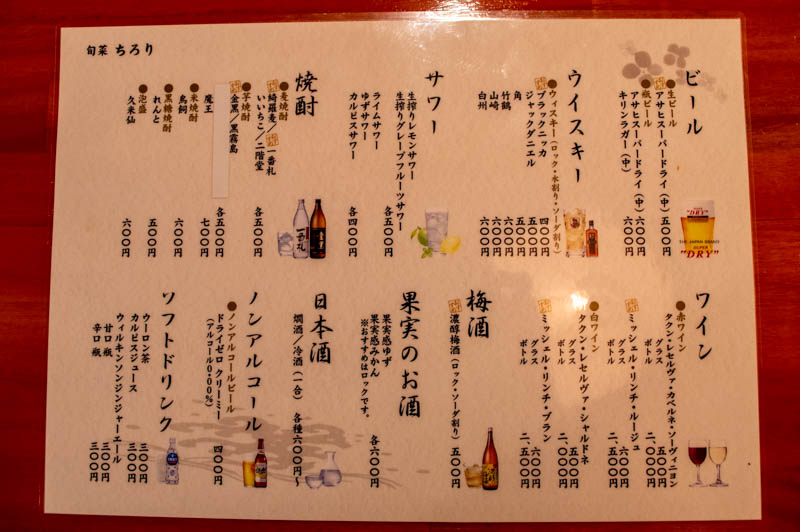 旬菜 ちろり
ビール
●生ビール
アサヒスーパードライ(中) 五〇〇円
●瓶ビール
アサヒスーパードライ(中) 六〇〇円
キリンラガー(中) 六〇〇円
"DRY"
THE JAPAN BRAND
SUPER
"DRY"
ウイスキー
●ウィスキー(ロック・水割り・ソーダ割り)
ブラックニッカ 四〇〇円
ジャックダニエル 五〇〇円
角 五〇〇円
竹鶴 六〇〇円
山崎 六〇〇円
白州 六〇〇円
サワー
生搾りレモンサワー
生搾りグレープフルーツサワー 各五〇〇円
ライムサワー
ゆずサワー
カルピスサワー 各四〇〇円
焼酎
●麦焼酎
綺羅麦/一番札
いいちこ/二階堂 各五〇〇円
●芋焼酎
金黒/黒霧島 各五〇〇円
魔王 七〇〇円
●米焼酎
鳥飼 六〇〇円
●黒糖焼酎
れんと 五〇〇円
●泡盛
久米仙 六〇〇円
一番札
ワイン
●赤ワイン
タクン・レセルヴァ・カベルネ・ソーヴィニヨン
グラス 五〇〇円
ボトル 二、〇〇〇円
ミッシェル・リンチ・ルージュ
グラス 六〇〇円
ボトル 二、五〇〇円
●白ワイン
タクン・レセルヴァ・シャルドネ
グラス 五〇〇円
ボトル 二、〇〇〇円
ミッシェル・リンチ・ブラン
グラス 六〇〇円
ボトル 二、五〇〇円
梅酒
濃醇梅酒(ロック・ソーダ割り) 五〇〇円
果実のお酒
果実感ゆず
果実感みかん 各六〇〇円
※おすすめはロックです。
日本酒
燗酒/冷酒(一合) 各種六〇〇円~
ノンアルコール
●ノンアルコールビール
ドライゼロ クリーミー 四〇〇円
(アルコール0.00%)
ソフトドリンク
ウーロン茶 三〇〇円
カルピスジュース 三〇〇円
ウィルキンソンジンジャーエール
甘口 瓶 三〇〇円
辛口 瓶 三〇〇円